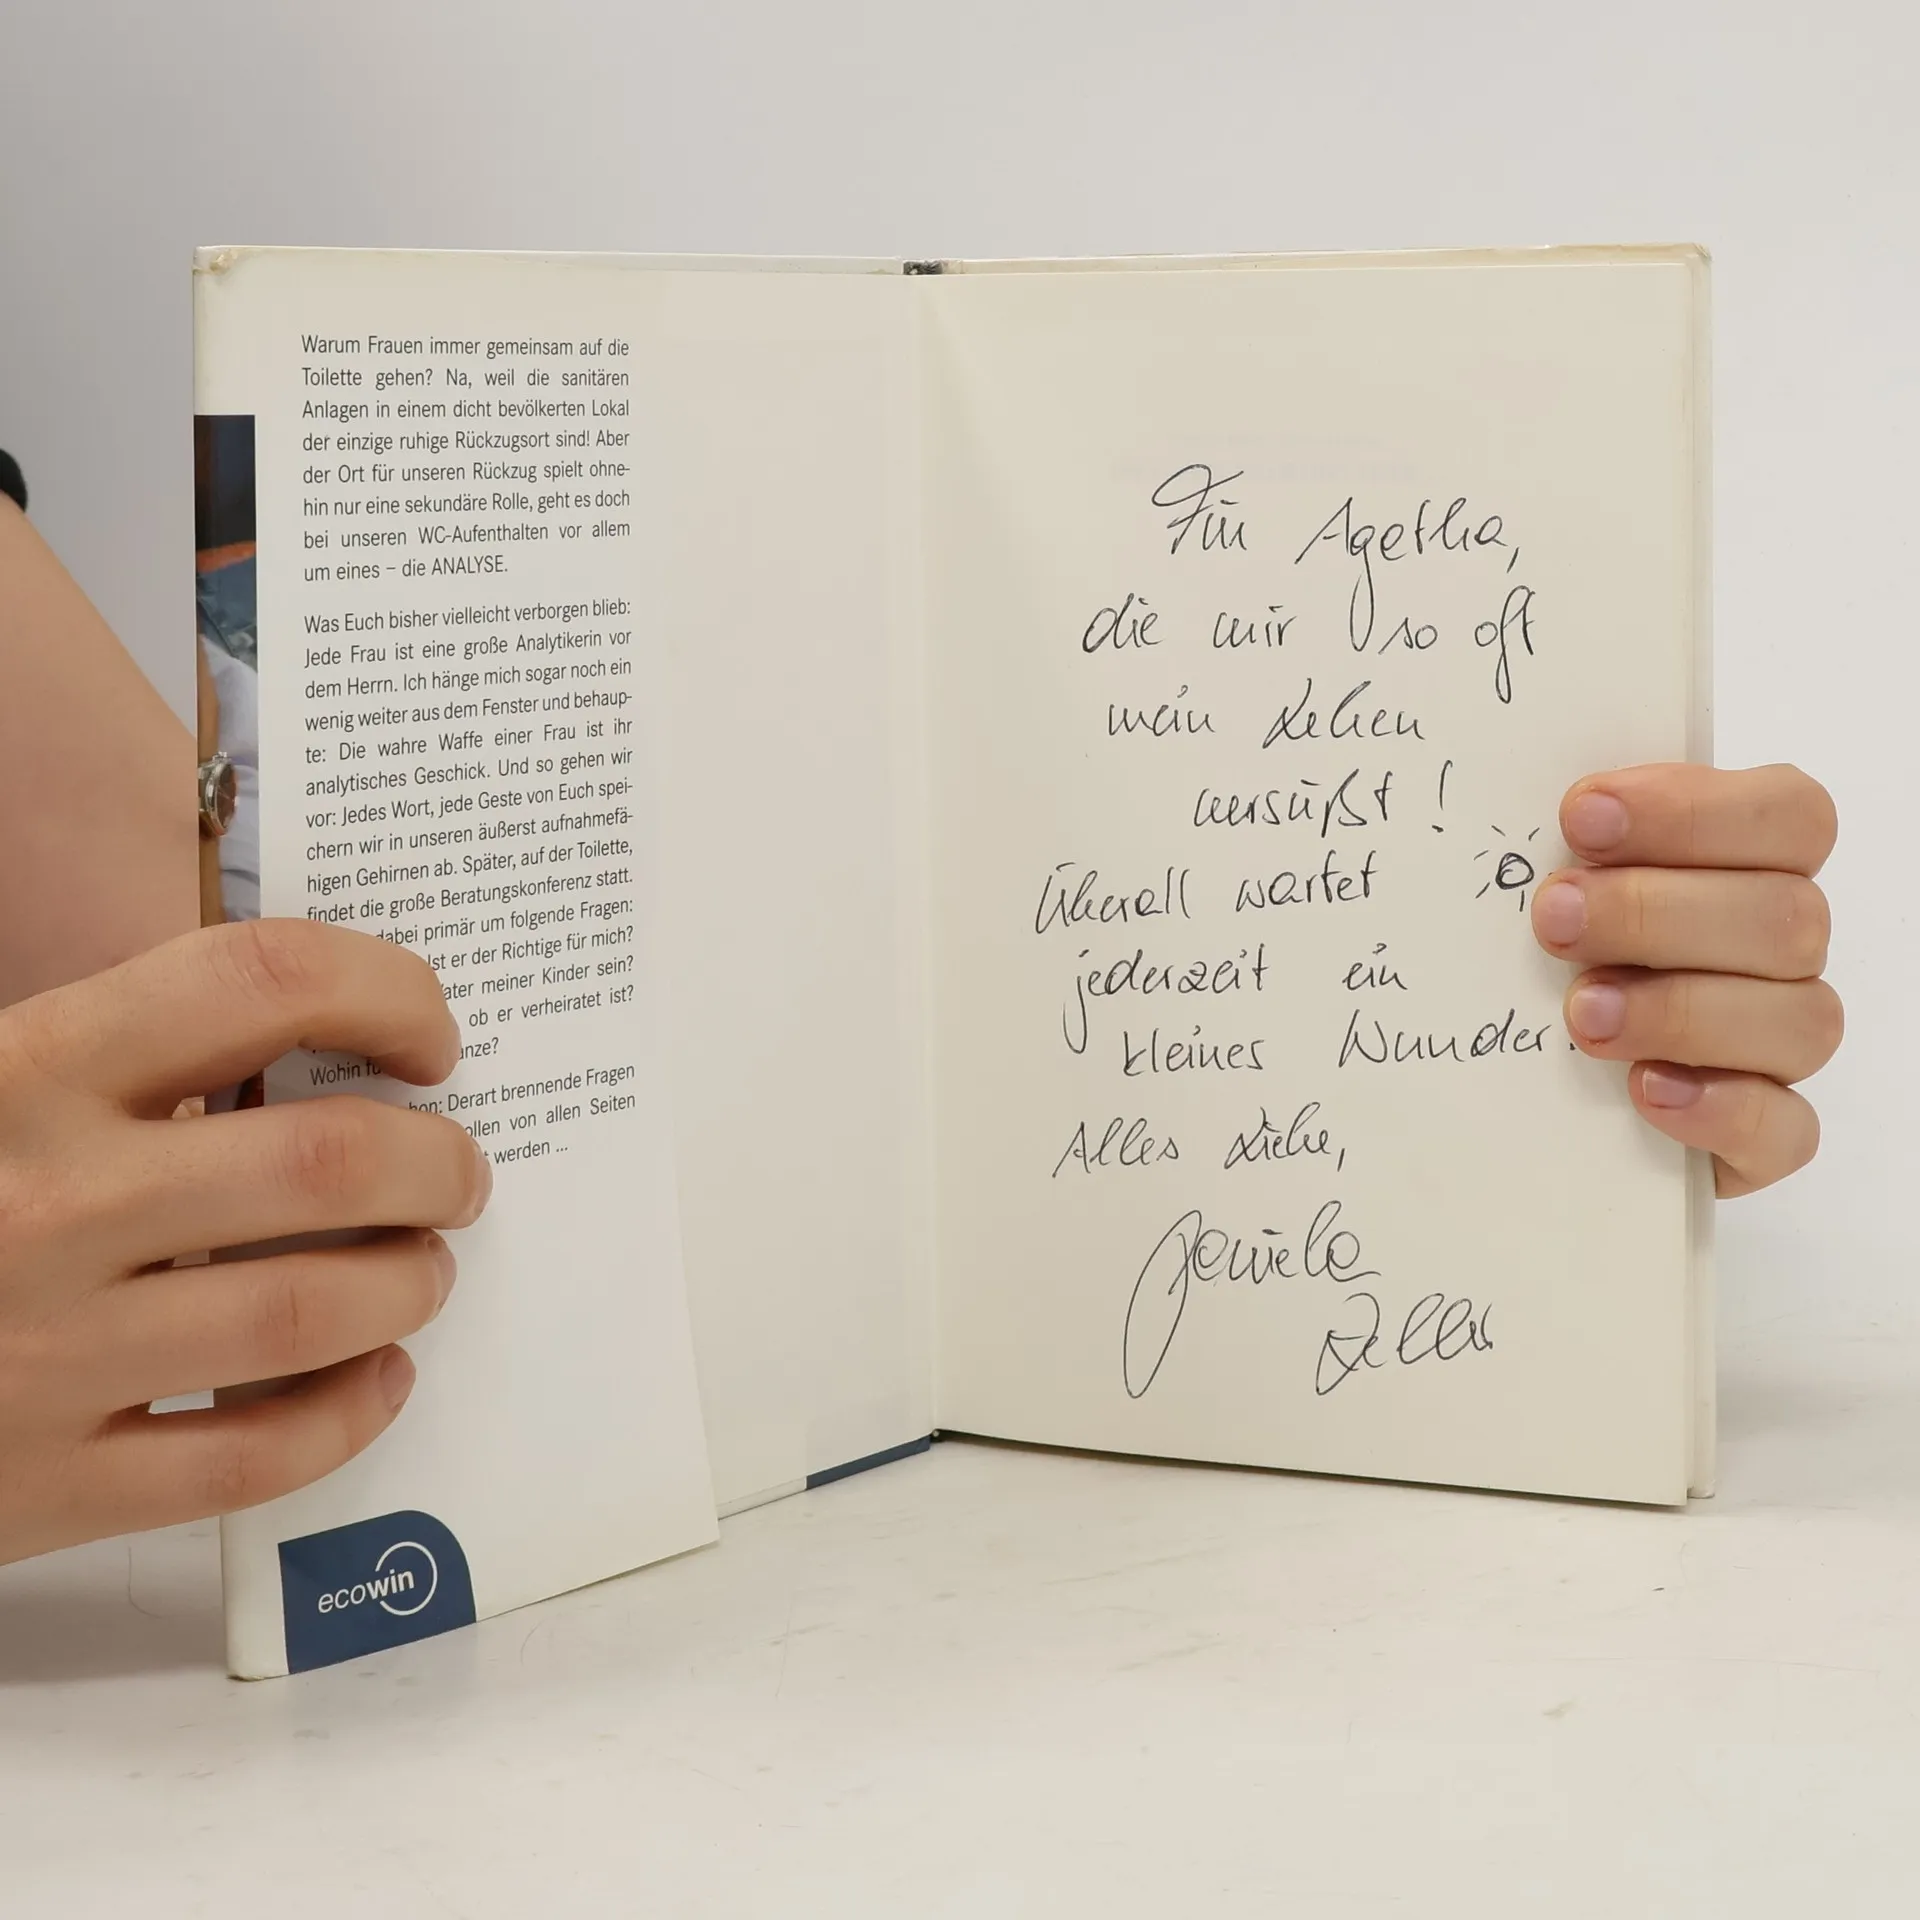 Warum Frauen immer gemeinsam auf die
Toilette gehen? Na, weil die sanitären
Anlagen in einem dicht bevölkerten Lokal
der einzige ruhige Rückzugsort sind! Aber
der Ort für unseren Rückzug spielt ohne-
hin nur eine sekundäre Rolle, geht es doch
bei unseren WC-Aufenthalten vor allem
um eines – die ANALYSE.
Was Euch bisher vielleicht verborgen blieb:
Jede Frau ist eine große Analytikerin vor
dem Herrn. Ich hänge mich sogar noch ein
wenig weiter aus dem Fenster und behaup-
te: Die wahre Waffe einer Frau ist ihr
analytisches Geschick. Und so gehen wir
vor: Jedes Wort, jede Geste von Euch spei-
chern wir in unseren äußerst aufnahmefä-
higen Gehirnen ab. Später, auf der Toilette,
findet die große Beratungskonferenz statt.
dabei primär um folgende Fragen:
Ist er der Richtige für mich?
meiner Kinder sein?
ob er verheiratet ist?
Wohin
Derart brennende Fragen
von allen Seiten
werden ...
ecowin
Für Agatha,
die mir so oft
mein Leben
versüßt!
Überall wartet
jederzeit ein
kleines Wunder.
Alles Liebe,
Daniela
Zeller